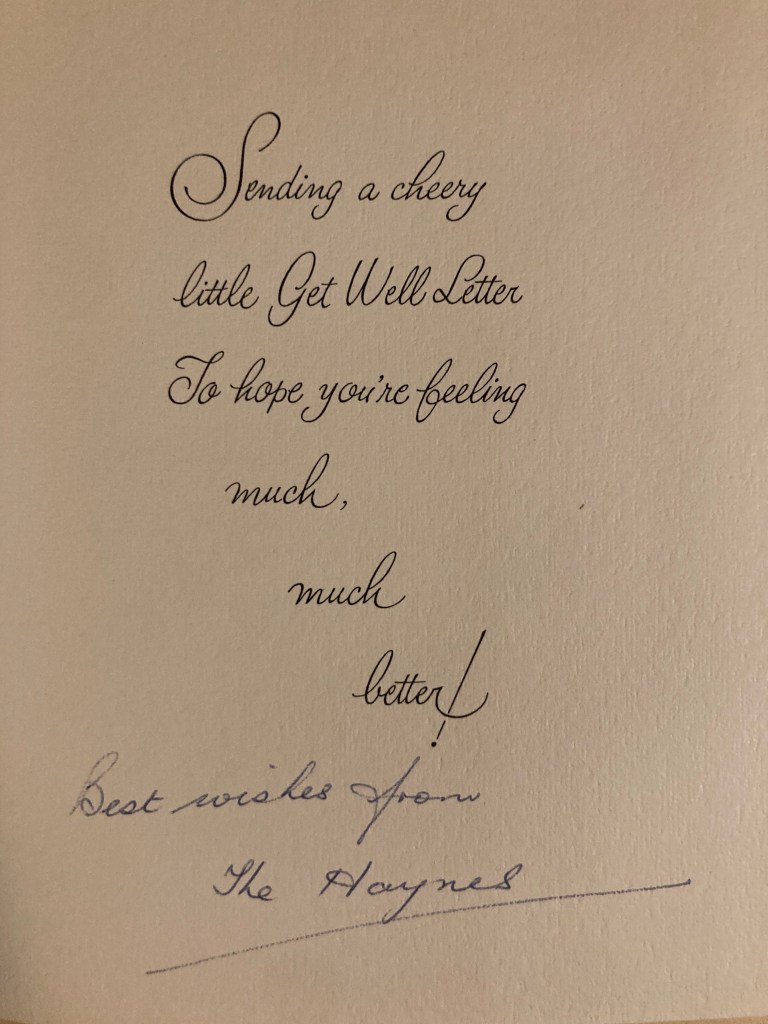 Sending a cheery
little Get Well Letter
To hope you're feeling
much,
much
better!
Best wishes from
The Haynes